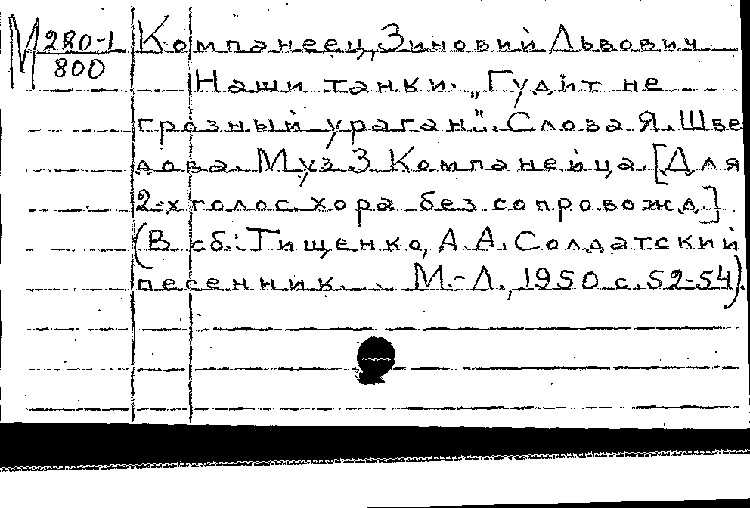 М 280-1
800
Компанеец, Зиновий Львович
Наши танки. „Гудит не
грозный ураган". Слова Я. Шве
дова. Муз З Компанейца. [Для
2-х голос. хора без сопровожд.]
(В сб.: Тищенко, А.А. Солдатский
песенник... М.-Л., 1950 с. 52-54).